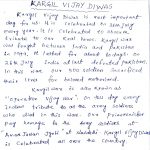 KARGIL VIJAY DIWAS
Kargil Vijay Diwas is most important
day for us It is celebrated on 26th July
every year. It is celebrated to
tribute to our Real hero. Kargil war
was fought between India and Pakistan
in 1999. It lasted for about
26th July India at last defeated pakistan.
In this war our 500 soldiers sacrificed
their lives for beloved motherland.
Kargil war is also known as
"operation Vijay" on this day every
Indian tribute to the army soldiers
who died in this war. Our prime minister
pay homage to the army soldiers at
"Amar Jawan Jyoti" at Kargil Vijay Diwas
is celebrated all over the country